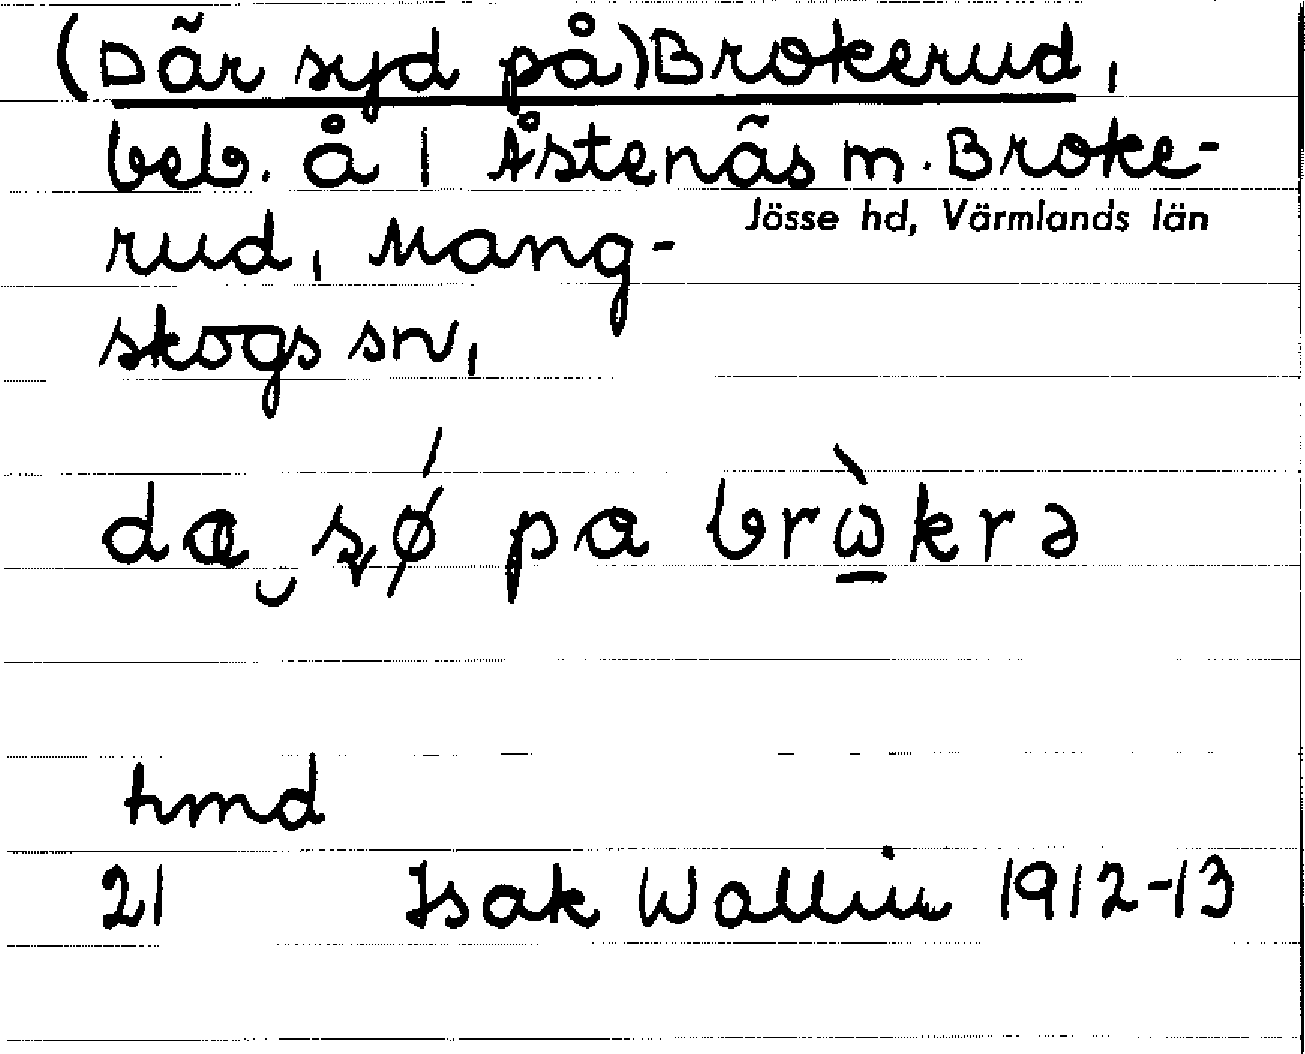 (Där syd på) Brokerud,
beb. å 1 Åstenäs m. Broke-
rud, Mang-
Jösse hd, Värmlands län
skogs sn,
dɑ̮ sǿ pa brὼ̱krə
hmd
21 Isak Wallin 1912-13